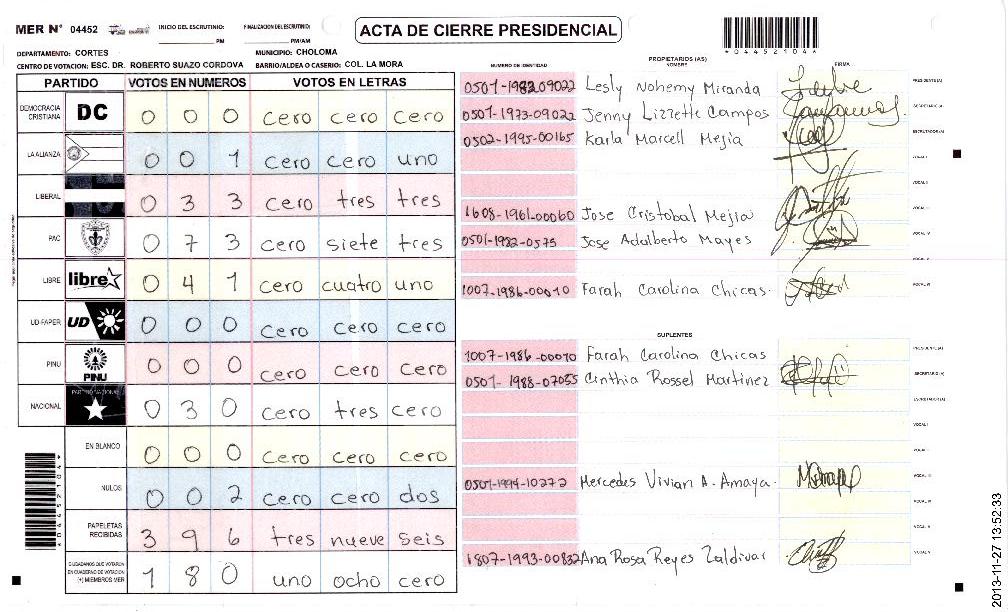 MER N° 04452 INICIO DEL ESCRUTINIO: PM FINALIZACION DEL ESCRUTINIO: PM/AM
ACTA DE CIERRE PRESIDENCIAL
*04452104*
DEPARTAMENTO: CORTES MUNICIPIO: CHOLOMA
CENTRO DE VOTACION: ESC. DR. ROBERTO SUAZO CORDOVA BARRIO/ALDEA O CASERIO: COL. LA MORA
PARTIDO VOTOS EN NUMEROS VOTOS EN LETRAS
DEMOCRACIA CRISTIANA DC 0 0 0 cero cero cero
LA ALIANZA 0 0 1 cero cero uno
LIBERAL 0 3 3 cero tres tres
PAC 0 7 3 cero siete tres
LIBRE libre 0 4 1 cero cuatro uno
UD-FAPER UD 0 0 0 cero cero cero
PINU PINU 0 0 0 cero cero cero
NACIONAL PARTIDO NACIONAL 0 3 0 cero tres cero
EN BLANCO 0 0 0 cero cero cero
NULOS 0 0 2 cero cero dos
PAPELETAS RECIBIDAS 3 9 6 tres nueve seis
CIUDADANOS QUE VOTARON EN CUADERNO DE VOTACION (+) MIEMBROS MER 1 8 0 uno ocho cero
*04452104*
NUMERO DE IDENTIDAD PROPIETARIOS (AS) NOMBRE FIRMA
0501-1982 09022 Lesly Nohemy Miranda PRESIDENTE(A)
0501-1973-09022 Jenny Lizzette Campos SECRETARIO (A)
0502-1995-00165 Karla Marcell Mejia ESCRUTADOR(A)
VOCAL I
VOCAL II
1608-1961-00060 Jose Cristobal Mejia VOCAL III
0501-1982-0575 Jose Adalberto Mayes VOCAL IV
VOCAL V
1007-1986-00010 Farah Carolina Chicas. VOCAL VI
SUPLENTES
1007-1986-00010 Farah Carolina Chicas PRESIDENTE(A)
0501-1988-07055 Cinthia Rossel Martinez SECRETARIO (A)
ESCRUTADOR(A)
VOCAL I
VOCAL II
0501-1994-10272 Mercedes Vivian A. Amaya. VOCAL III
VOCAL IV
VOCAL V
1807-1993-00832 Ana Rosa Reyes Zaldivar VOCAL VI
2013-11-27 13:52:33